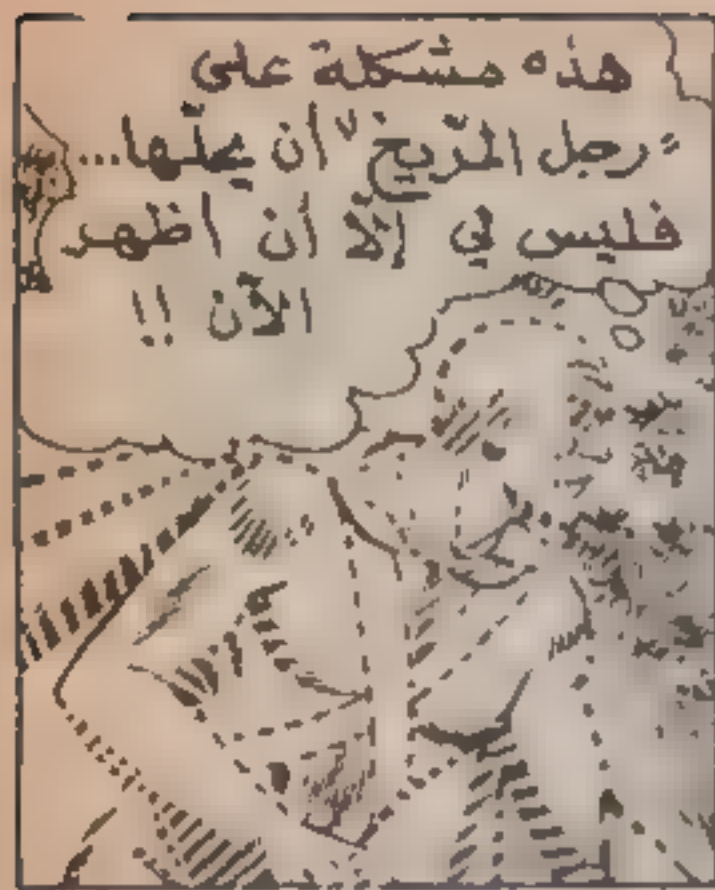 هذه مشكلة على
"رجل المرّيخ" أن يحلّها...
فليس لي إلّا أن اظهر
الآن !!